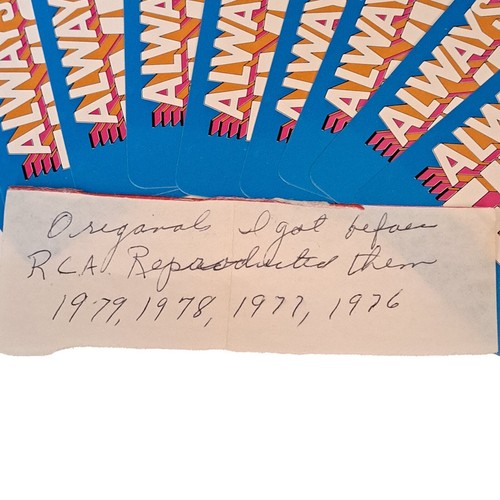 ALWAYS
ALWAYS
ALWAYS
ALWAYS
ALWAYS
ALWAYS
ALWAYS
ALWAYS
Origanals I got before
RCA Reproducted them
1979, 1978, 1977, 1976